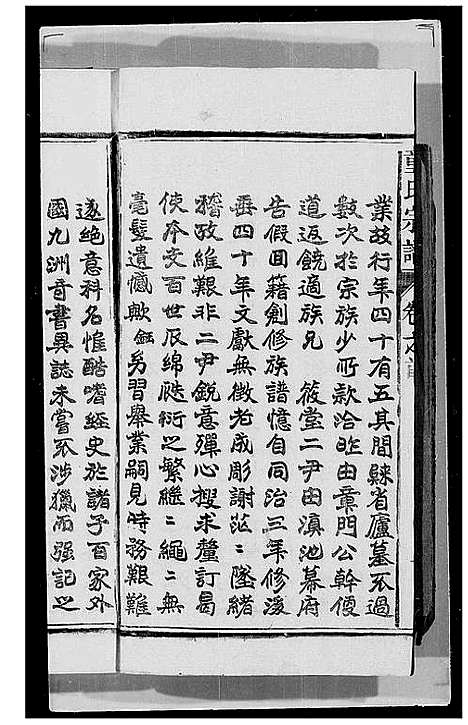 章氏宗譜 卷之首
業故行年四十有五其間歸省廬墓不過
數次於宗族少所款洽昨由章門公幹便
道返饒適族兄 筱堂二尹由滇池幕府
告假回籍創修族譜憶自同治三年修後
垂四十年文獻無徵老成彫謝茫茫墜緒
稽攷維艱非二尹銳意殫心搜求釐訂曷
使本支百世瓜綿瓞衍之繁繼繼繩繩無
毫髮遺憾歟鈺幼習舉業嗣見時務艱難
遂絕意科名惟酷嗜經史於諸子百家外
國九洲奇書異誌未嘗不涉獵而強記之